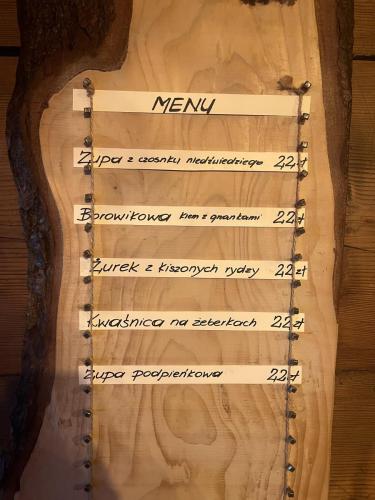 MENU
Zupa z czosnku niedźwiedziego 22zł
Borowikowa krem z grzankami 22zł
Żurek z kiszonych rydzy 22zł
Kwaśnica na żeberkach 22zł
Zupa podpieńkowa 22zł